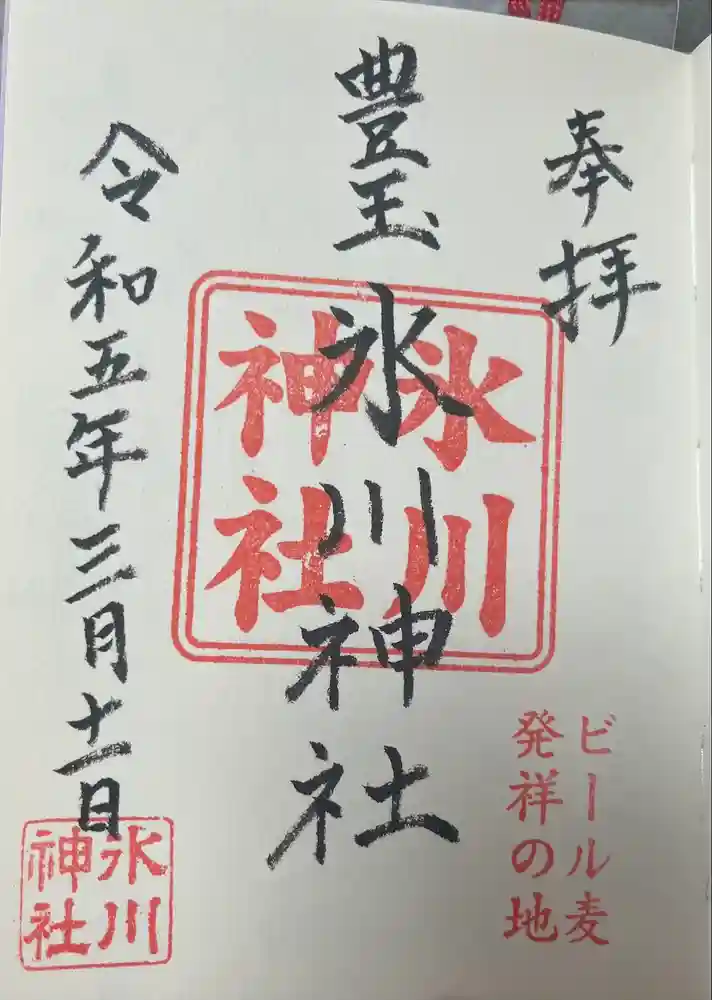 奉拝
ビール麦
発祥の地
豊玉氷川神社
氷川
神社
令和五年三月十一日
氷川
神社